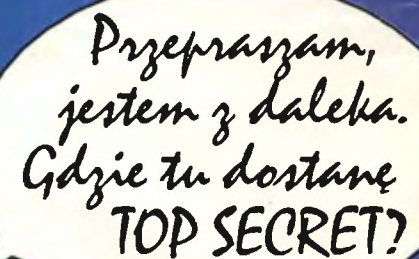 Przepraszam,
jestem z daleka.
Gdzie tu dostanę
TOP SECRET?